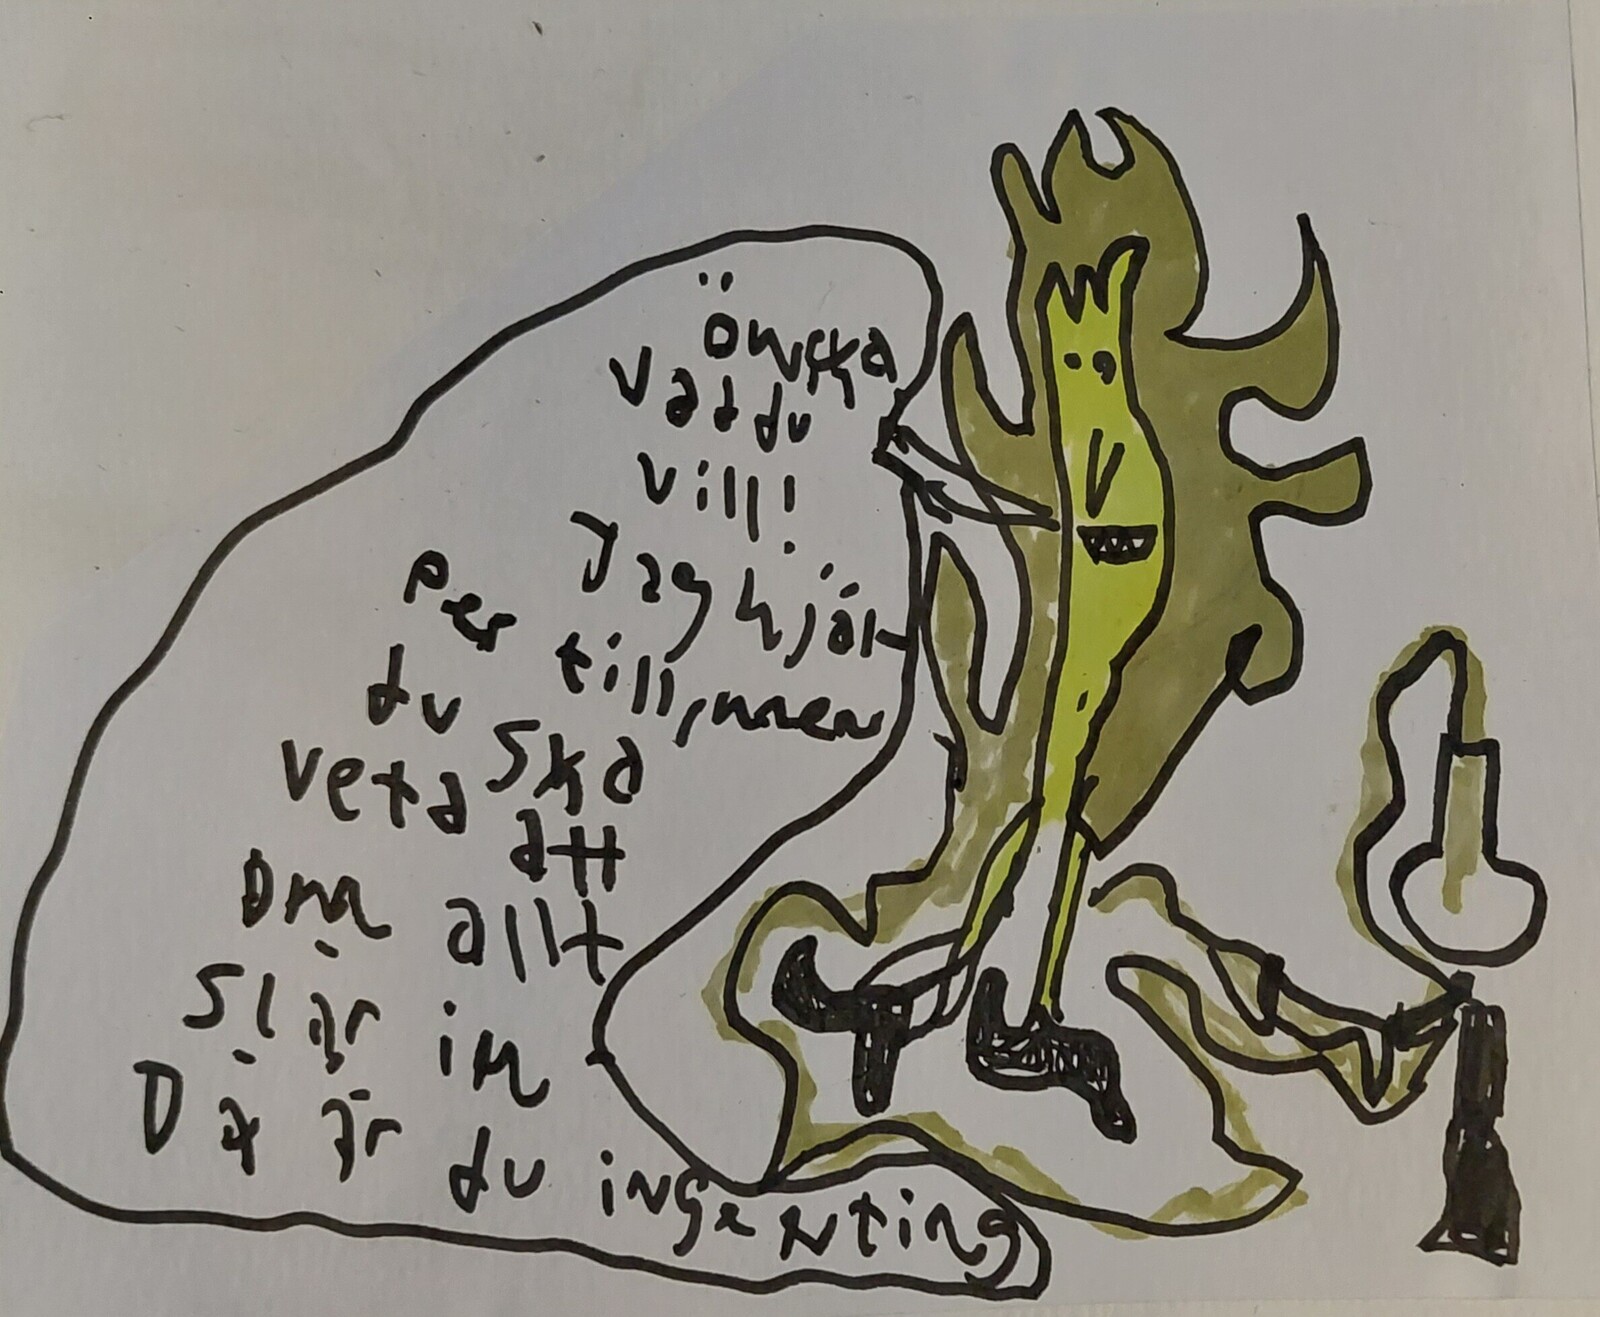 önska
vad du
vill!
Jag hjäl
per till, men
du ska
veta att
om allt
slår in
Då är du ingenting